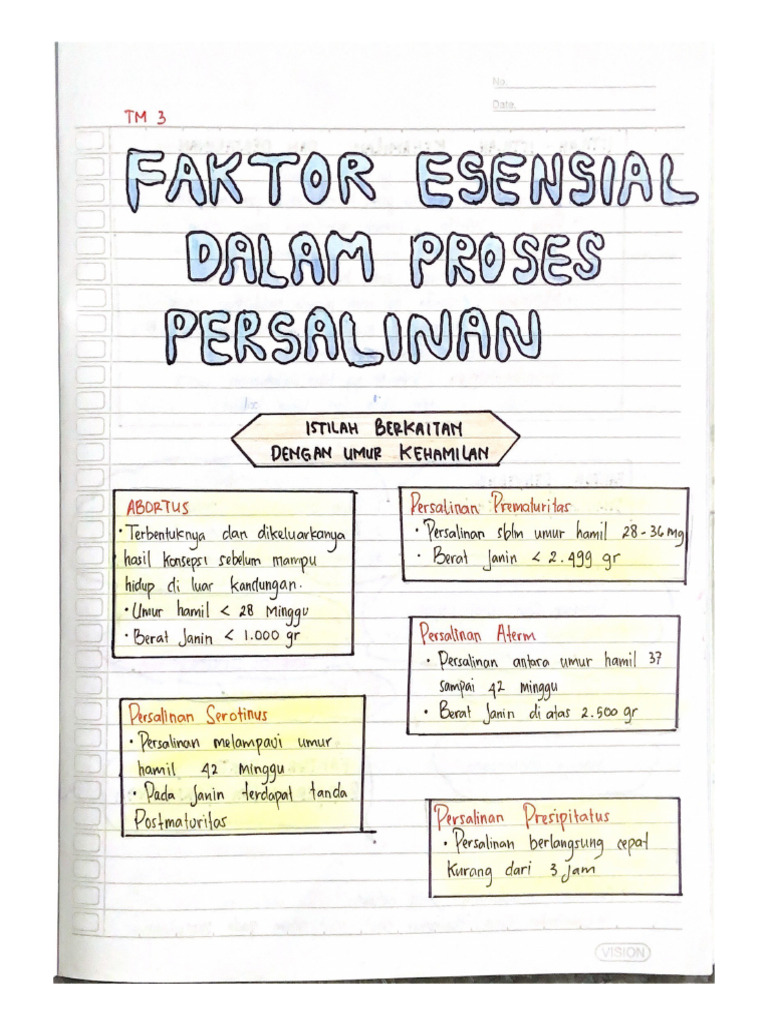 No.
Date.
TM 3
FAKTOR ESENSIAL
DALAM PROSES
PERSALINAN
ISTILAH BERKAITAN
DENGAN UMUR KEHAMILAN
ABORTUS
• Terbentuknya dan dikeluarkanya
hasil konsepsi sebelum mampu
hidup di luar kandungan.
• Umur hamil < 28 Minggu
• Berat Janin < 1.000 gr
Persalinan Prematuritas
• Persalinan sblm umur hamil 28-36 mg
• Berat Janin < 2.499 gr
Persalinan Aterm
• Persalinan antara umur hamil 37
sampai 42 minggu
• Berat Janin di atas 2.500 gr
Persalinan Serotinus
• Persalinan melampaui umur
hamil 42 minggu
• Pada Janin terdapat tanda
Postmaturitas
Persalinan Presipitatus
• Persalinan berlangsung cepat
kurang dari 3 jam
VISION